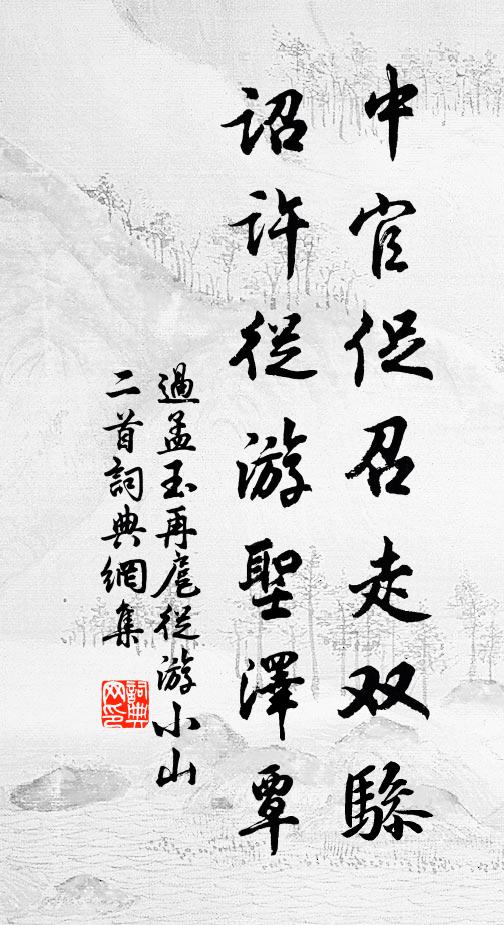 中官促召走双騄
詔許從游聖澤覃
過孟玉再扈從游小山
二首詞典網集
詞典
网印